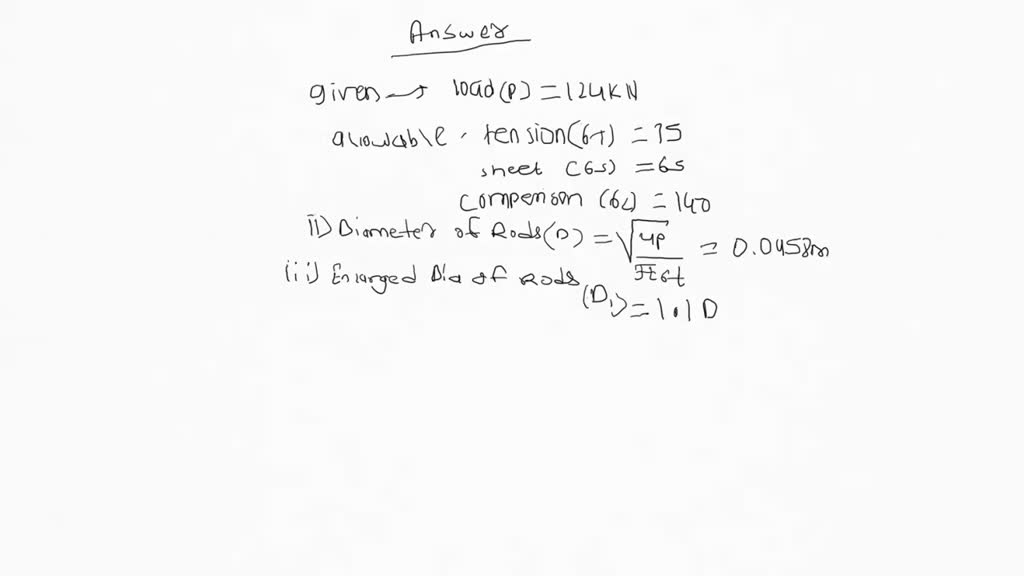 Answer
given → load (P) = 124KN
allowable . tension (6T) = 75
sheet (6s) = 65
compension (6c) = 140
ii) Diameter of Rods (D) = √4P/π6t = 0.0458m
(ii) Enlarged Dia of Rods
(D1) = 1.1 D